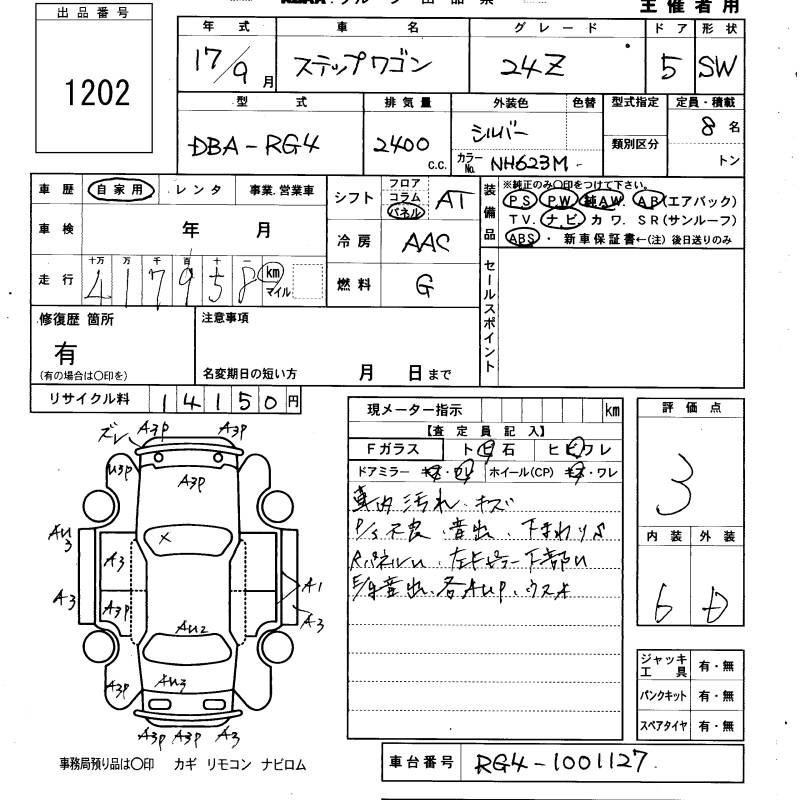 出品番号
1202
主催者用
年式 車名 グレード ドア 形状
17/9月 ステップワゴン 24Z 5 SW
型式 排気量 外装色 色替 型式指定 定員・積載
DBA-RG4 2400 C.C. シルバー 類別区分 8名
カラーNo. NH623M- トン
車歴 自家用 レンタ 事業.営業車
シフト フロア コラム パネル AT
装備品 ※純正のみ〇印をつけて下さい。
PS PW 純AW. AB(エアバック)
TV. ナビ カワ. SR(サンルーフ)
ABS・ 新車保証書←(注) 後日送りのみ
車検 年 月
冷房 AAC
走行 十万 万 千 百 十 一
417958 km マイル
燃料 G
セールスポイント
修復歴 箇所
有
(有の場合は〇印を)
注意事項
名変期日の短い方 月 日まで
リサイクル料 14150円
現メーター指示 km
【査定員記入】
Fガラス ト ビ 石 ヒ ビ ワレ
ドアミラー キズ・ワレ ホイール(CP) キズ・ワレ
車内汚れ.キズ
P/S不良.音出.下まわりS
RパネルU.左Fピラー下部U
評価点
3
内装 外装
6 D
ズレ A3P A3P
U3P A3P
AU3 A3 A3 A3P A1 A3
X
AU2
A3P AU3
A3P A3P A3
ジャッキ工具 有・無
パンクキット 有・無
スペアタイヤ 有・無
事務局預り品は〇印 カギ リモコン ナビロム
車台番号 RG4-1001127